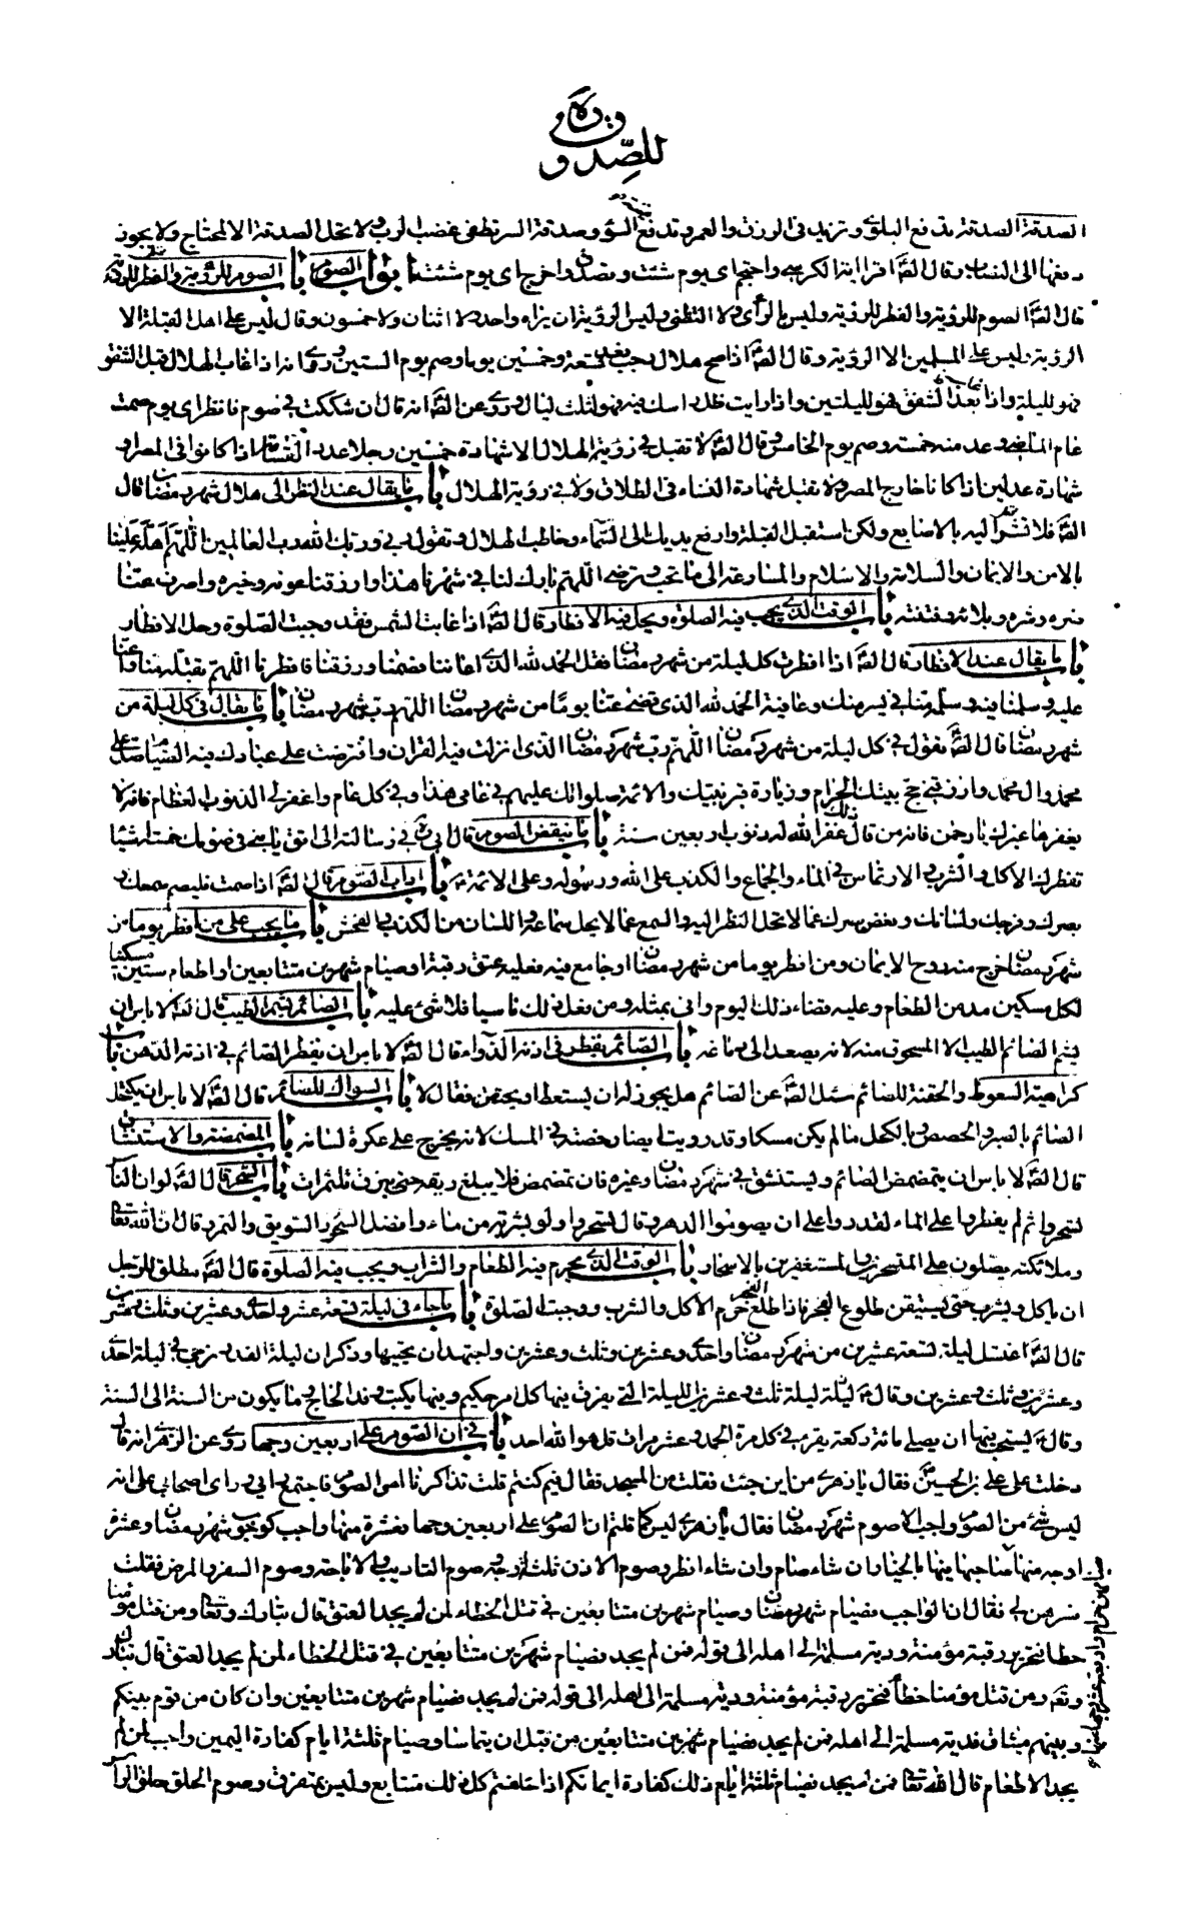 للصدوق ره
الصدقة الصدقة تدفع البلوى وتزيد في الرزق والعمر وتدفع السؤ وصدقة السر تطفى غضب الرب ولا تحل الصدقة الا لمحتاج ولا يجوز
دفعها الى النصاب وقال الصَّ اقرا اية الكرسى واحتجم اى يوم شئت وتصدق واخرج اى يوم شئت ابواب الصوم باب الصوم للرؤية والفطر للرؤية
قال الصَّ الصوم للرؤية والفطر للرؤية وليس بالرأى ولا التظنى وليس الرؤية ان يراه واحد ولا اثنان ولا خمسون وقال ليس على اهل القبلة الا
الرؤية وليس على المسلمين الا الرؤية وقال الصَّ اذا صح هلال رجب فعد تسعة وخمسين يوما وصم يوم الستين وروى انه اذا غاب الهلال قبل الشفق
فهو لليلة واذا غاب بعد الشفق فهو لليلتين واذا رايت ظل راسك فيه فهو لثلث ليال وروى عن الصَّ انه قال ان شككت في صوم فانظر اى يوم صمت
عام الماضى وعد منه خمسة وصم يوم الخامس وقال الصَّ لا تقبل في رؤية الهلال الا شهادة خمسين رجلا عدد القسامة اذا كانوا في المصر او
شهادة عدلين اذا كانا خارج المصر ولا تقبل شهادة النساء في الطلاق ولا في رؤية الهلال باب ما يقال عند النظر الى هلال شهر رمضان قال
الصَّ فلا تشر اليه بالاصابع ولكن استقبل القبلة وارفع يديك الى السماء وخاطب الهلال وتقول ربى وربك الله رب العالمين اللهم اهله علينا
بالامن والايمان والسلامة والاسلام والمسارعة الى ما تحب وترضى اللهم بارك لنا في شهرنا هذا وارزقنا عونه وخيره واصرف عنا
ضره وشره وبلائه وفتنته باب الوقت الذى يجب فيه الصلوة ويحل فيه الافطار قال الصَّ اذا غابت الشمس فقد وجبت الصلوة وحل الافطار
باب ما يقال عند الافطار قال الصَّ اذا افطرت كل ليلة من شهر رمضان فقل الحمد لله الذى اعاننا فصمنا ورزقنا فافطرنا اللهم تقبله منا واعنا
عليه وسلمنا فيه وسلمه منا في يسر منك وعافية الحمد لله الذى قضى عنا يوما من شهر رمضان اللهم رب شهر رمضان باب ما يقال في كل ليلة من
شهر رمضان قال الصَّ تقول في كل ليلة من شهر رمضان اللهم رب شهر رمضان الذى انزلت فيه القران وافترضت على عبادك فيه الصيام صل على
محمد وال محمد وارزقنى حج بيتك الحرام وزيارة قبر نبيك والائمة صلواتك عليهم في عامى هذا وفي كل عام واغفر لى الذنوب العظام فانه لا
يغفرها غيرك يا رحمن فانه من قال ذلك غفر الله له ذنوب اربعين سنة باب ما ينقض الصوم قال ابى في رسالته الى اتق يا بنى في صومك خمسة اشياء
تفطرك الاكل والشرب والارتماس في الماء والجماع والكذب على الله ورسوله وعلى الائمة باب اداب الصوم قال الصَّ اذا صمت فليصم سمعك و
بصرك وفرجك ولسانك وتغض بصرك عما لا يحل النظر اليه والسمع عما لا يحل سماعه واللسان من الكذب والفحش باب ما يجب على من افطر يوما من
شهر رمضان خرج منه روح الايمان ومن افطر يوما من شهر رمضان او جامع فيه فعليه عتق رقبة او صيام شهرين متتابعين او اطعام ستين مسكينا
لكل مسكين مد من الطعام وعليه قضاء ذلك اليوم وانى بمثله ومن فعل ذلك ناسيا فلا شئ عليه باب الصائم يشم الطيب قال الصَّ لا باس ان
يشم الصائم الطيب الا المسحوق منه لانه يصعد الى دماغه باب الصائم يقطر في اذنه الدواء قال الصَّ لا باس ان يقطر الصائم في اذنه الدهن باب
كراهية السعوط والحقنة للصائم سئل الصَّ عن الصائم هل يجوز له ان يستعط او يحتقن فقال لا باب السواك للصائم قال الصَّ لا باس ان يكتحل
الصائم بالصبر والحصص وبالكحل ما لم يكن مسكا وقد رويت ايضا رخصة في المسك لانه يخرج على عكرة لسانه باب المضمضة والاستنشاق
قال الصَّ لا باس ان يتمضمض الصائم ويستنشق في شهر رمضان وغيره فان تمضمض فلا يبلغ ريقه حتى يبزق ثلث مرات باب السحور قال الصَّ لو ان الناس
تسحروا ثم لم يفطروا على الماء لقدروا على ان يصوموا الدهر وقال تسحروا ولو بشربة من ماء وافضل السحور السويق والتمر وقال ان الله تعالى
وملائكته يصلون على المتسحرين والمستغفرين بالاسحار باب الوقت الذى يحرم فيه الطعام والشراب ويجب فيه الصلوة قال الصَّ مطلق للرجل
ان ياكل ويشرب حتى يستيقن طلوع الفجر فاذا طلع الفجر حرم الاكل والشرب ووجبت الصلوة باب ما جاء في ليلة تسعة عشر واحدى وعشرين وثلث وعشرين
قال الصَّ اغتسل ليلة تسعة عشر من شهر رمضان واحدى وعشرين وثلث وعشرين واجتهد ان تحييها وذكر ان ليلة القدر ترجى في ليلة احدى
وعشرين وثلث وعشرين وقال ليلة ثلث وعشرين الليلة التى يفرق فيها كل امر حكيم وفيها يكتب وفد الحاج وما يكون من السنة الى السنة
وقال يستحب فيها ان يصلى مائة ركعة يقرء في كل ركعة الحمد وعشر مرات قل هو الله احد باب في ان الصوم على اربعين وجها روى عن الزهرى انه قال
دخلت على على بن الحسين فقال يا زهرى من اين جئت فقلت من المسجد فقال فيم كنتم قلت تذاكرنا امر الصوم فاجتمع رايى وراى اصحابى على انه
ليس شئ من الصوم واجب الا صوم شهر رمضان فقال يا زهرى ليس كما قلتم ان الصوم على اربعين وجها فعشرة منها واجب كوجوب شهر رمضان وعشرة
اوجه منها صاحبها فيها بالخيار ان شاء صام وان شاء افطر وصوم الاذن ثلثة اوجه وصوم التاديب والاباحة وصوم السفر والمرض فقلت
فسرهن لى فقال ان الواجب فصيام شهر رمضان وصيام شهرين متتابعين في قتل الخطاء لمن لم يجد العتق قال تبارك وتعالى ومن قتل مؤمنا
خطا فتحرير رقبة مؤمنة ودية مسلمة الى اهله الى قوله فمن لم يجد فصيام شهرين متتابعين في قتل الخطاء لمن لم يجد العتق قال تبارك
وتعالى ومن قتل مؤمنا خطأ فتحرير رقبة مؤمنة ودية مسلمة الى اهله الى قوله فمن لم يجد فصيام شهرين متتابعين وان كان من قوم بينكم
وبينهم ميثاق فدية مسلمة الى اهله فمن لم يجد فصيام شهرين متتابعين من قبل ان يتماسا وصيام ثلثة ايام كفارة اليمين واجب لمن لم
يجد الاطعام قال الله تعالى فمن لم يجد فصيام ثلثة ايام ذلك كفارة ايمانكم اذا حلفتم كل ذلك متتابع وليس بمتفرق وصوم الحلق حلق الرأ